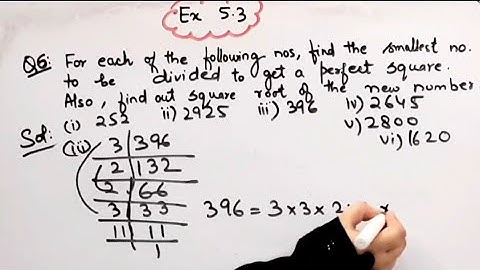 Ex 5.3
Q6: For each of the following nos, find the smallest no.
to be divided to get a perfect square.
Also, find out square root of the new number
(i) 252 ii) 2925 iii) 396 iv) 2645
v) 2800
vi) 1620
Sol:
(iii)
3 | 396
2 | 132
2 | 66
3 | 33
11 | 11
1
396 = 3 × 3 × 2 ×